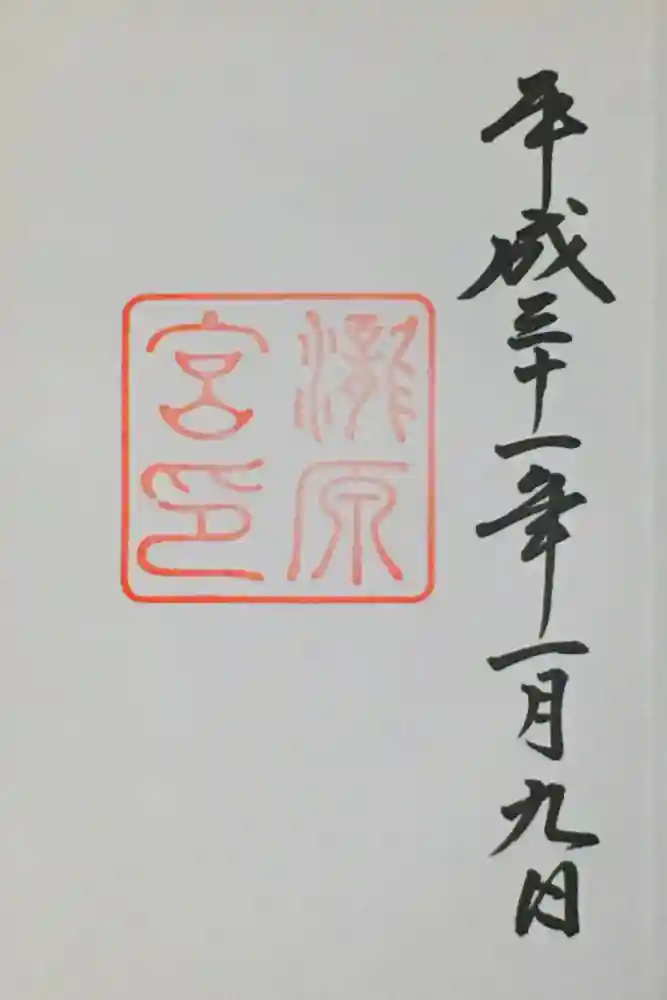 平成三十一年一月九日
瀧原
宮印